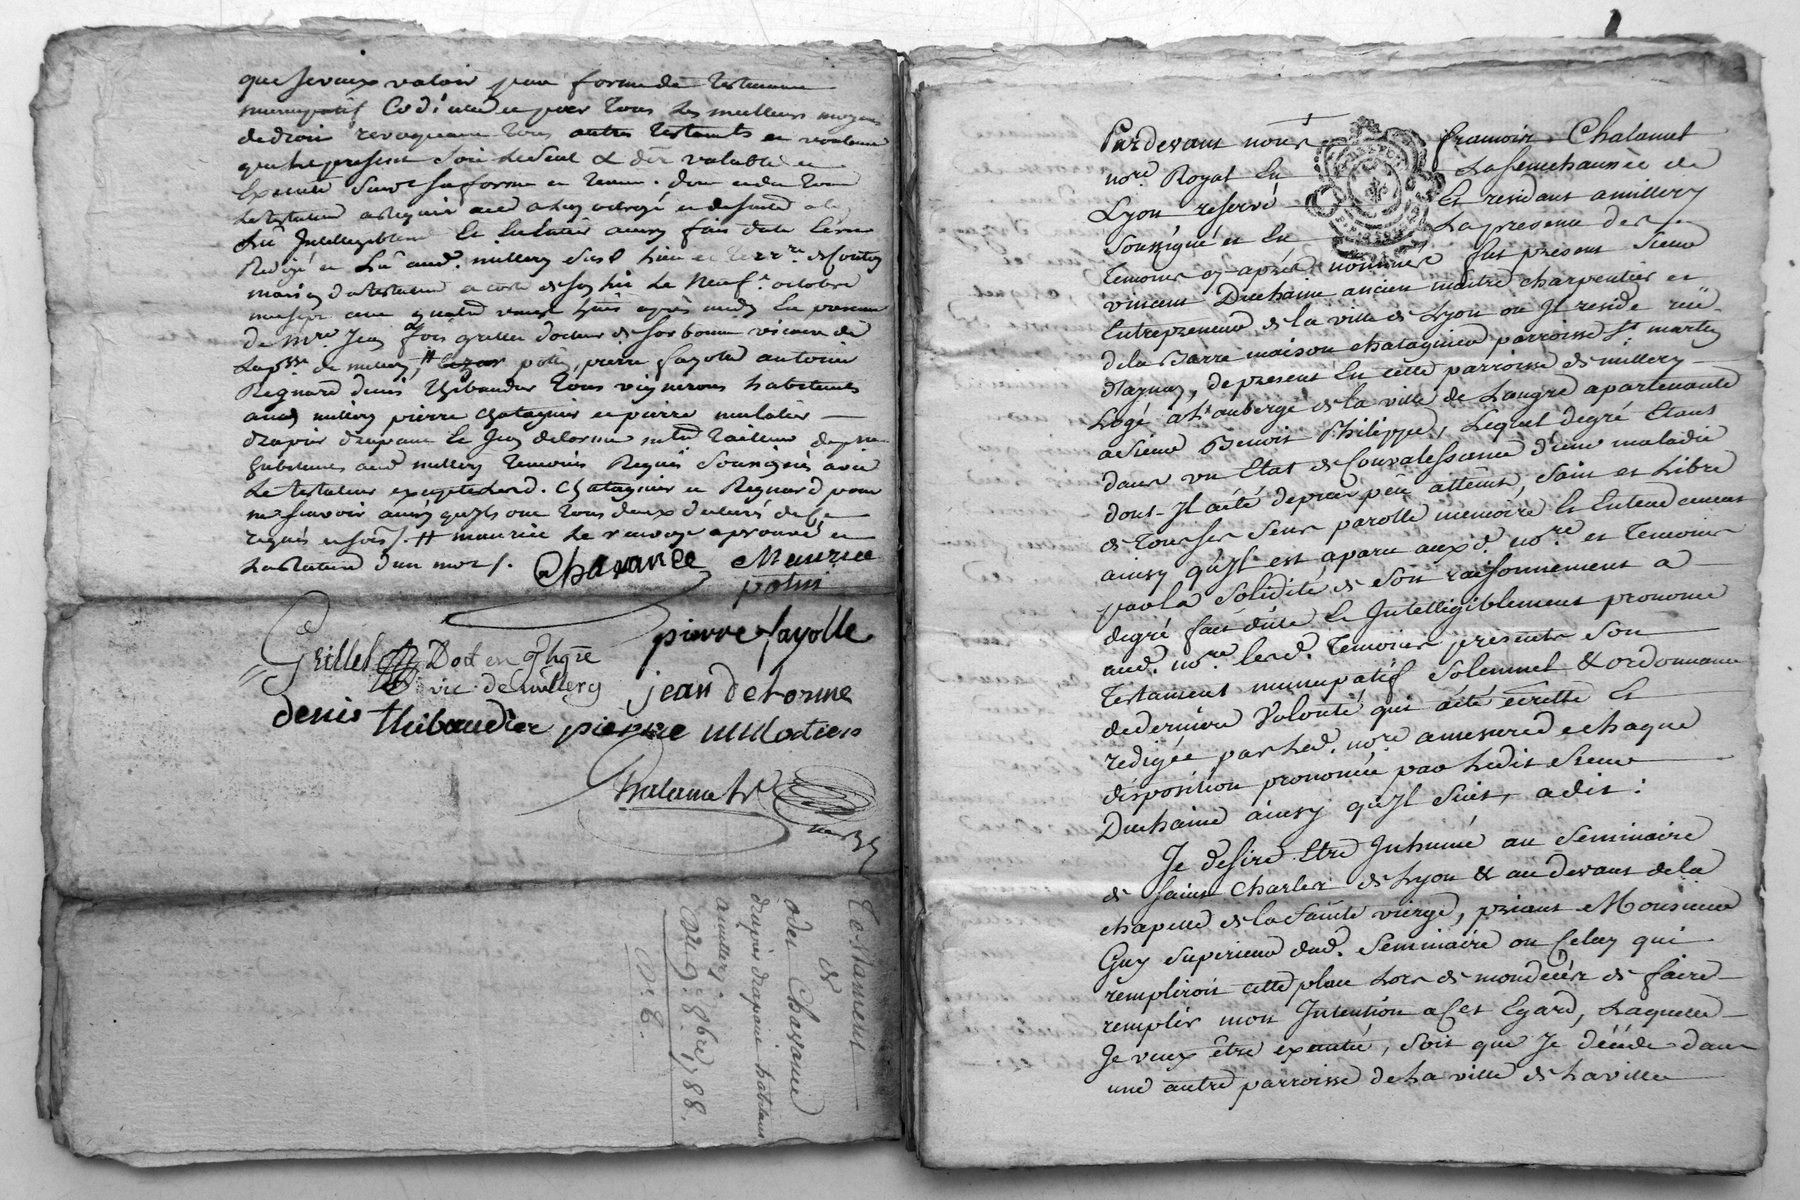 que je veux valoir par forme de testament
nuncupatif codicille et par tous les meilleurs moyens
de droit revoquant tous autres testaments et voulant
que le present soit le seul & dt valable et
executé suivt sa forme et teneur. dont et du tout
le testateur a requis acte a luy octroyé
lû Intelligiblement
Redigé et Lû aud. millery
maison du testateur le neuf octobre
mil sept cent quatre vingt huit après midy En presence
de mre Jean fois grillet docteur de sorbonne vicaire de
la psse de millery, # potin, pierre fayolle antoine
Regnard denis thibaudier tous vignerons habitants
aud millery pierre chatagnier et pierre mulatier
drapier drapant Et Jean delorme tailleur
habitants aud millery temoins Requis soussignés avec
le testateur excepté lesd. chatagnier et Regnard pour
ne scavoir ainsy qu'ils ont tous deux declaré de ce
requis ensois /. # maurice le renvoy aprouvé et
la rature d'un mot /.
Chavance Maurice
potin
pierre fayolle
Grillet Doct en
vic. de millery jean delorme
denis thibaudier pierre mulatier
Chalamet
Testament
de
odet Chavance
drapier drapant habitant
a millery
Du 9. 8bre 1788.
Pardevant nous françois Chalamet
nore. Royal En La senechaussée de
Lyon reservé Et residant a millery
soussigné et En La presence des
temoins cy-après nommés fut present sieur
vincent Duchaine ancien maitre charpentier et
Entrepreneur de la ville de Lyon ou Il reside ruë
de la Barre maison chatagnier parroisse st. martin
Daynay, de present En cette parroisse de millery
Logé a L'auberge de la ville de Langre apartenante
a sieur Benoit Philippe, Lequel degré Etant
dans un Etat de Convalessance d'une maladie
dont Il a été depuis peu atteint, sain et Libre
de tous ses sens parolle memoire Et Entendement
ainsy qu'il est aparu auxd. nore. et temoins
par la solidité de son raisonnement a
degré fait dicté Et Intelligiblement prononcé
aud. nore. lesd. temoins presents son
testament nuncupatif solemnel & ordonnance
de derniere volonté qui a été ecritte Et
redigée par led. nore. a mesure de chaque
disposition prononcée par ledit sieur
Duchaine ainsy qu'il suit, a dit:
Je desire Etre Inhumé au seminaire
de saint Charles de Lyon & au devant de la
chapelle de la sainte vierge, priant Monsieur
Guy superieur dud. seminaire ou Celuy qui
rempliroit cette place Lors de mon decés de faire
remplir mon Intention a Cet Egard, Laquelle
Je veux être exécutée, soit que Je décéde dans
une autre parroisse de La ville de La ville